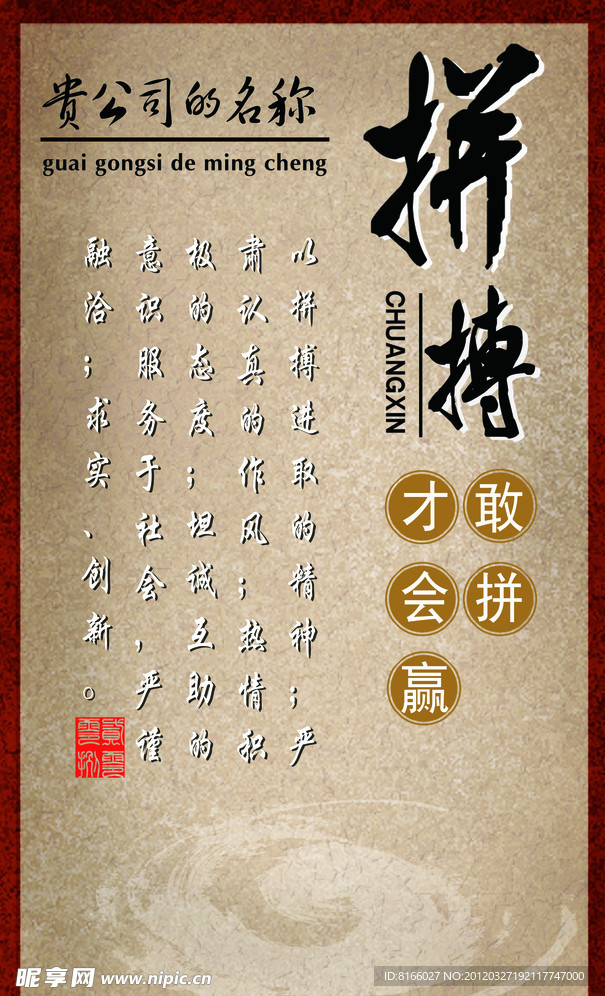 贵公司的名称
guai gongsi de ming cheng
拼搏
CHUANGXIN
敢拼
才会赢
以拼搏进取的精神；严
肃认真的作风；热情积
极的态度；坦诚互助的
意识服务于社会，严谨
融洽；求实、创新。
昵享网 www.nipic.cn
ID:8166027 NO:20120327192117747000